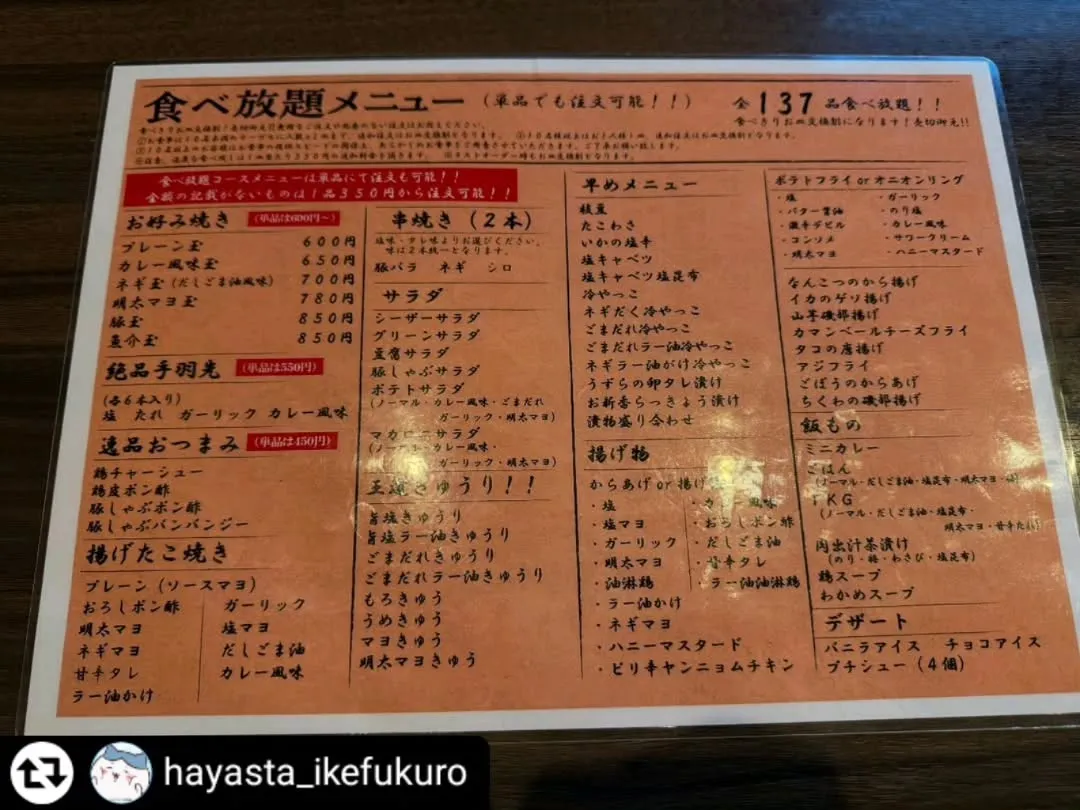 食べ放題メニュー（単品でも注文可能！！）
全137品食べ放題！！
食べきりお皿交換制になります！売切御免!!
食べ放題コースメニューは単品にて注文も可能！！
金額の記載がないものは1品350円から注文可能！！
お好み焼き （単品は600円〜）
プレーン玉 600円
カレー風味玉 650円
ネギ玉（だしごま油風味） 700円
明太マヨ玉 780円
豚玉 850円
魚介玉 850円
絶品手羽先 （単品は550円）
（各6本入り）
塩 たれ ガーリック カレー風味
逸品おつまみ （単品は450円）
鶏チャーシュー
鶏皮ポン酢
豚しゃぶポン酢
豚しゃぶバンバンジー
揚げたこ焼き
プレーン（ソースマヨ）
おろしポン酢
明太マヨ
ネギマヨ
甘辛タレ
ラー油かけ
ガーリック
塩マヨ
だしごま油
カレー風味
串焼き（2本）
塩味・タレ味よりお選びください。
味は2本統一となります。
豚バラ ネギ シロ
サラダ
シーザーサラダ
グリーンサラダ
豆腐サラダ
豚しゃぶサラダ
ポテトサラダ
（ノーマル・カレー風味・ごまだれ
ガーリック・明太マヨ）
マカロニサラダ
（ノーマル・カレー風味・
ガーリック・明太マヨ）
きゅうり！！
旨塩きゅうり
旨塩ラー油きゅうり
ごまだれきゅうり
ごまだれラー油きゅうり
もろきゅう
うめきゅう
マヨきゅう
明太マヨきゅう
早めメニュー
枝豆
たこわさ
いかの塩辛
塩キャベツ
塩キャベツ塩昆布
冷やっこ
ネギだく冷やっこ
ごまだれ冷やっこ
ごまだれラー油冷やっこ
ネギラー油がけ冷やっこ
うずらの卵タレ漬け
お新香らっきょう漬け
漬物盛り合わせ
揚げ物
からあげ or 揚げ
・塩
・塩マヨ
・ガーリック
・明太マヨ
・油淋鶏
・ラー油かけ
・ネギマヨ
・ハニーマスタード
・ピリ辛ヤンニョムチキン
・カレー風味
・おろしポン酢
・だしごま油
・甘辛タレ
・ラー油油淋鶏
ポテトフライ or オニオンリング
・塩
・バター醤油
・激辛デビル
・コンソメ
・明太マヨ
・ガーリック
・のり塩
・カレー風味
・サワークリーム
・ハニーマスタード
なんこつのから揚げ
イカのゲソ揚げ
山芋磯部揚げ
カマンベールチーズフライ
タコの唐揚げ
アジフライ
ごぼうのからあげ
ちくわの磯部揚げ
飯もの
ミニカレー
ごはん
（ノーマル・だしごま油・塩昆布・明太マヨ・
TKG
（ノーマル・だしごま油・塩昆布・
明太マヨ・甘辛たれ）
出汁茶漬け
（のり・梅・わさび・塩昆布）
鶏スープ
わかめスープ
デザート
バニラアイス チョコアイス
プチシュー（4個）
hayasta_ikefukuro